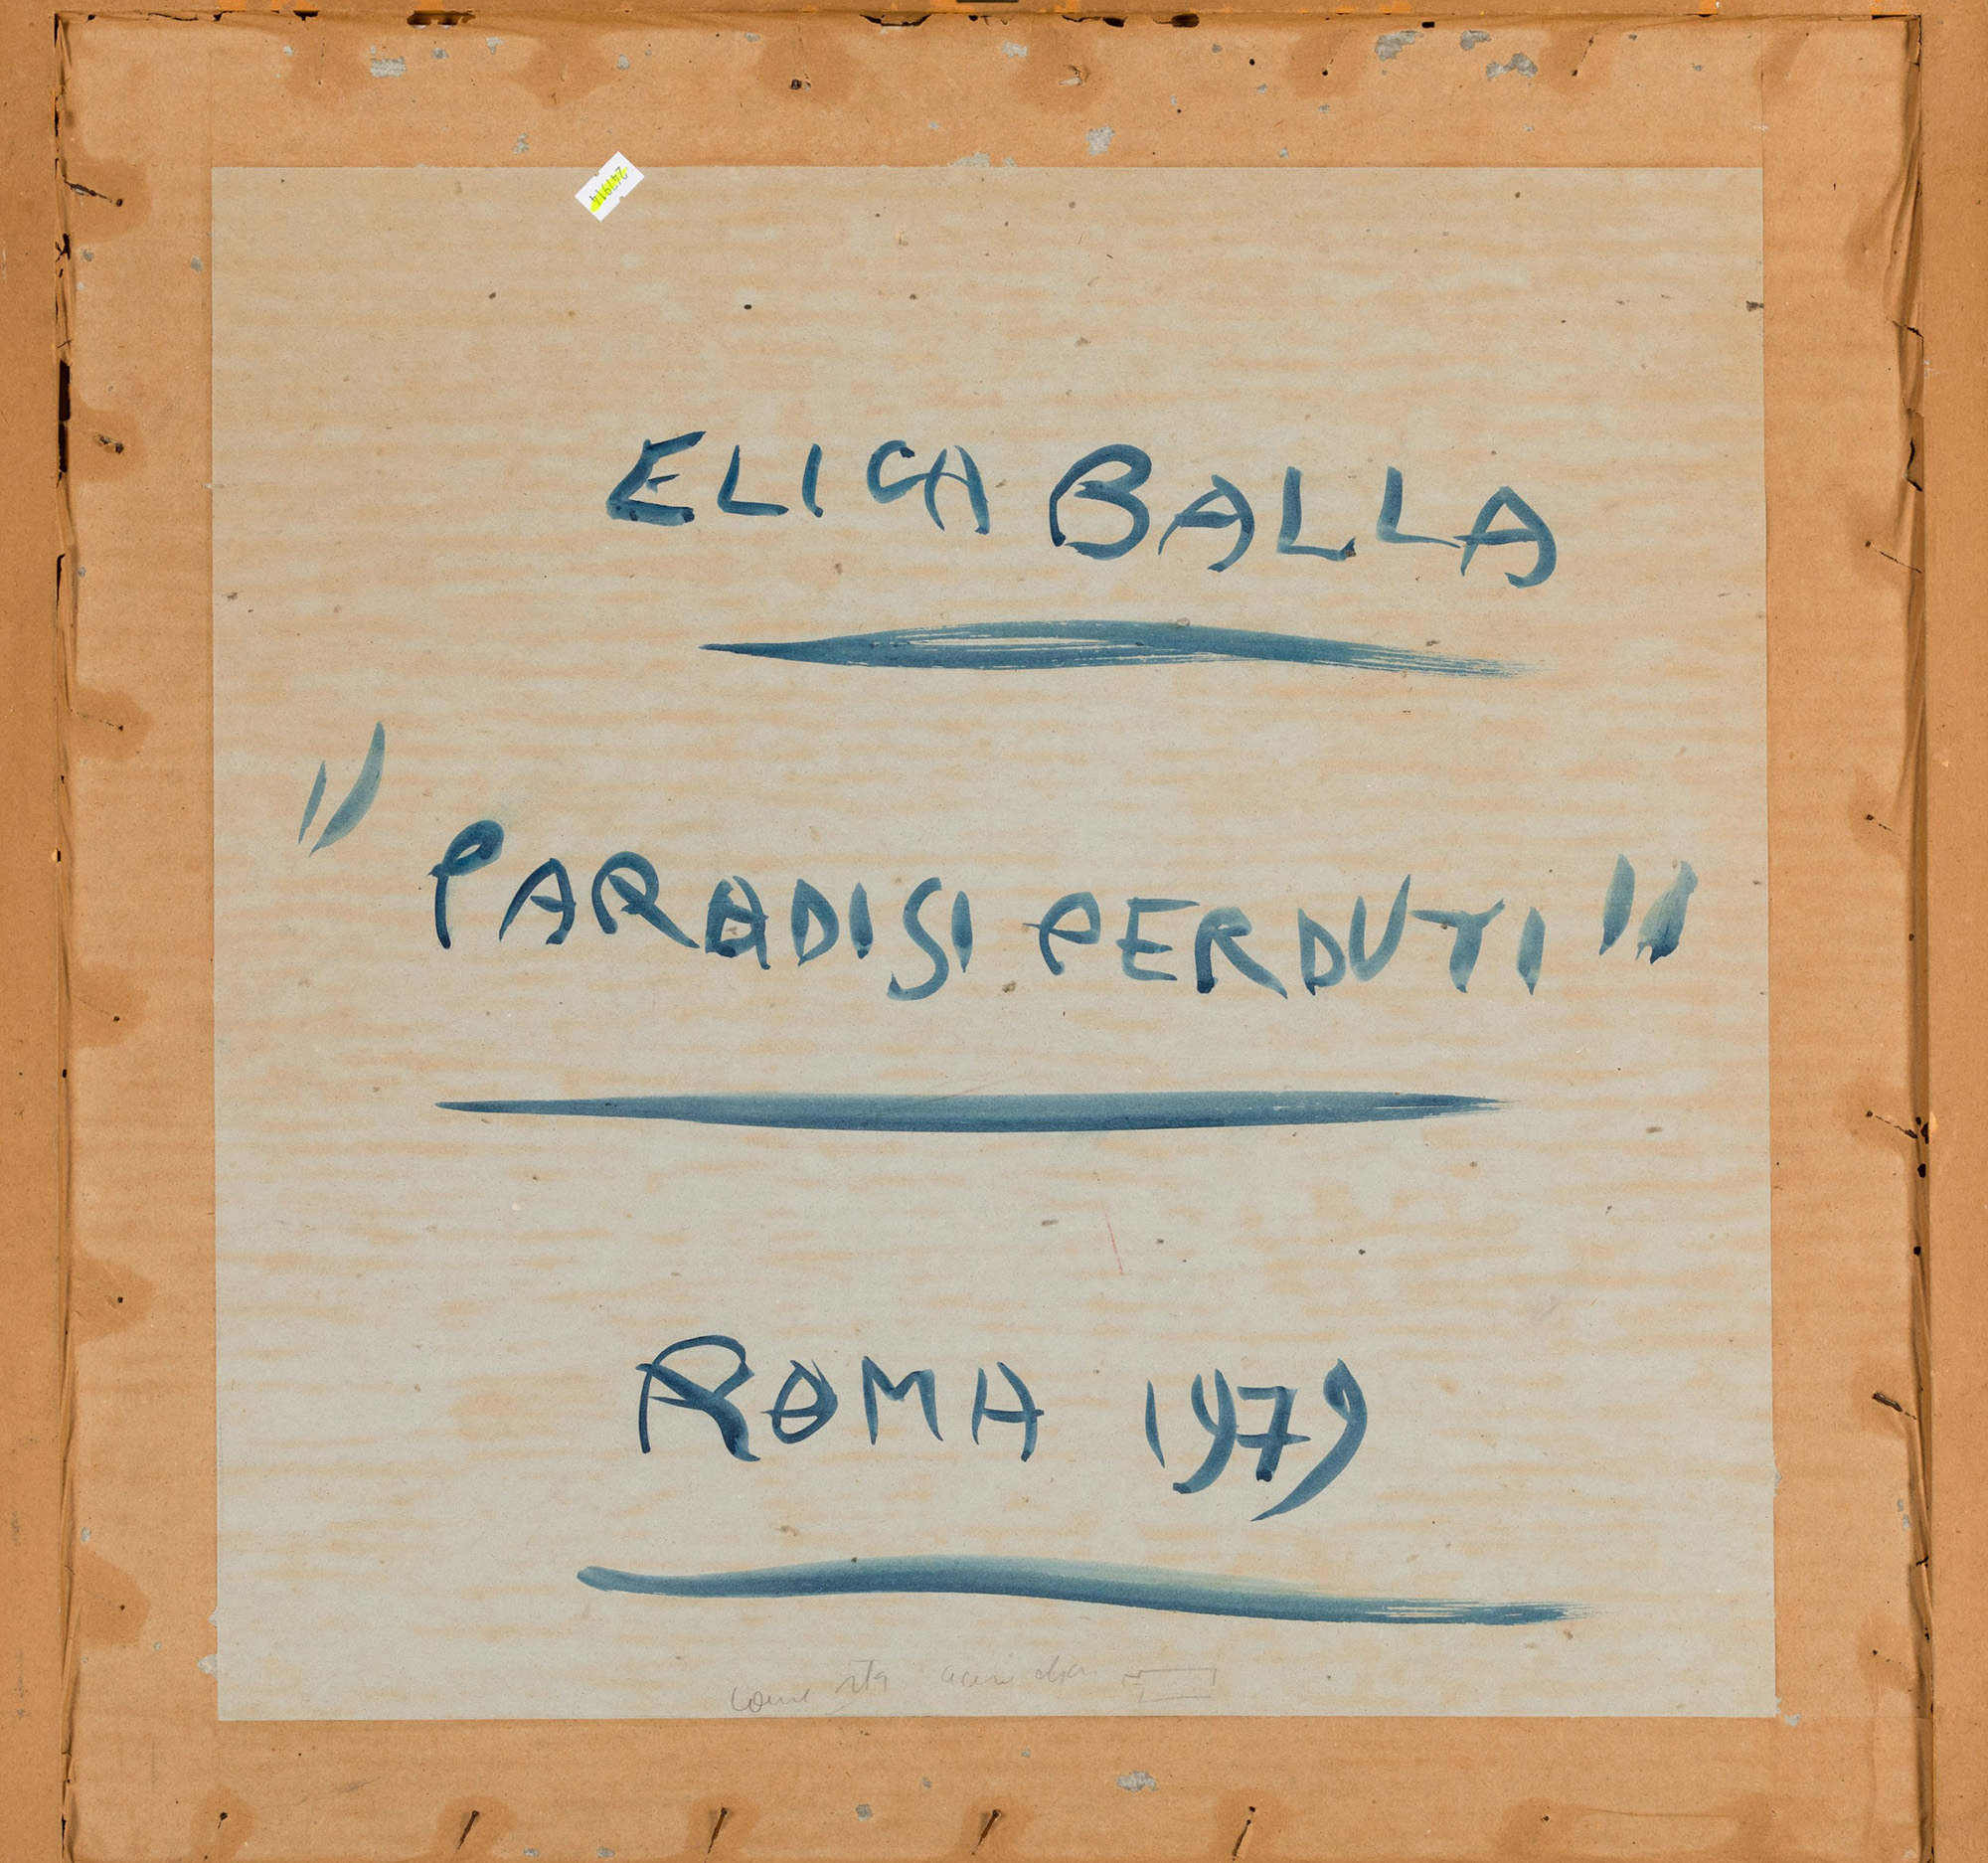 247914
ELICA BALLA
"PARADISI PERDUTI"
ROMA 1979